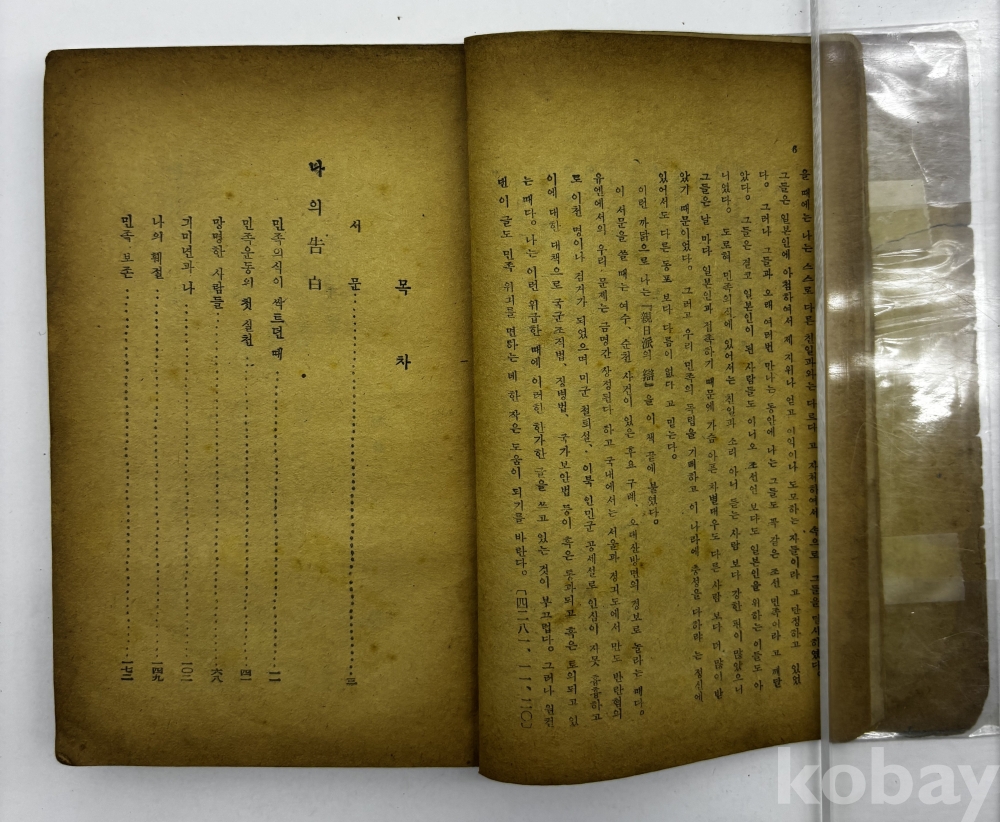 6
을 때에는 나는 스스로 다른 친일파와는 다르다고 자처하여서 속으로 그들을 멸시하였다.
그들은 일본인에 아첨하여서 제 지위나 얻고 이익이나 도모하는 자들이라고 단정하고 있었
다. 그러나 그들과 오래 여러번 만나는 동안에 나는 그들도 똑 같은 조선 민족이라고 깨달
았다. 그들은 결코 일본인이 된 사람들도 아니오 조선인 보다도 일본인을 위하는 이들도 아
니었다. 도로혀 민족의식에 있어서는 친일파 소리 아니 듣는 사람 보다 강한 점이 많았으니
그들은 날 마다 일본인과 접촉하기 때문에 가슴 아픈 차별대우도 다른 사람 보다 더, 많이 받
았기 때문이었다. 그러고 우리 민족의 독립을 기뻐하고 이 나라에 충성을 다하랴는 정성에
있어서도 다른 동포 보다 다름이 없다고 믿는다.
이런 까닭으로 나는 「親日派의 辯」을 이 책 끝에 붙였다.
이 서문을 쓸 때는 여수, 순천 사건이 있은 후요 구례, 오대산방면의 경보로 놀라는 때다.
유엔에서의 우리 문제는 금명간 상정된다 하고 국내에서는 서울과 경기도에서만도 반란혐의
로 이천 명이나 검거가 되었으며 미군 철퇴설, 이북 인민군 공세설로 인심이 자못 흉흉하고
이에 대한 대책으로 국군조직법, 징병법, 국가보안법 등이 혹은 통과되고 혹은 토의되고 있
는 때다. 나는 이런 위급한 때에 이러한 한가한 글을 쓰고 있는 것이 부끄럽다. 그러나 원컨
댄 이 글도 민족 위기를 면하는 데 한 작은 도움이 되기를 바란다. [四二八一, 一一, 二〇]
목차
서 문 三
나의 告白
민족의식이 싹트던 때 一一
민족운동의 첫 실천 四一
망명한 사람들 六八
기미년과 나 一〇二
나의 훼절 一四九
민족 보존 一七二
kobay